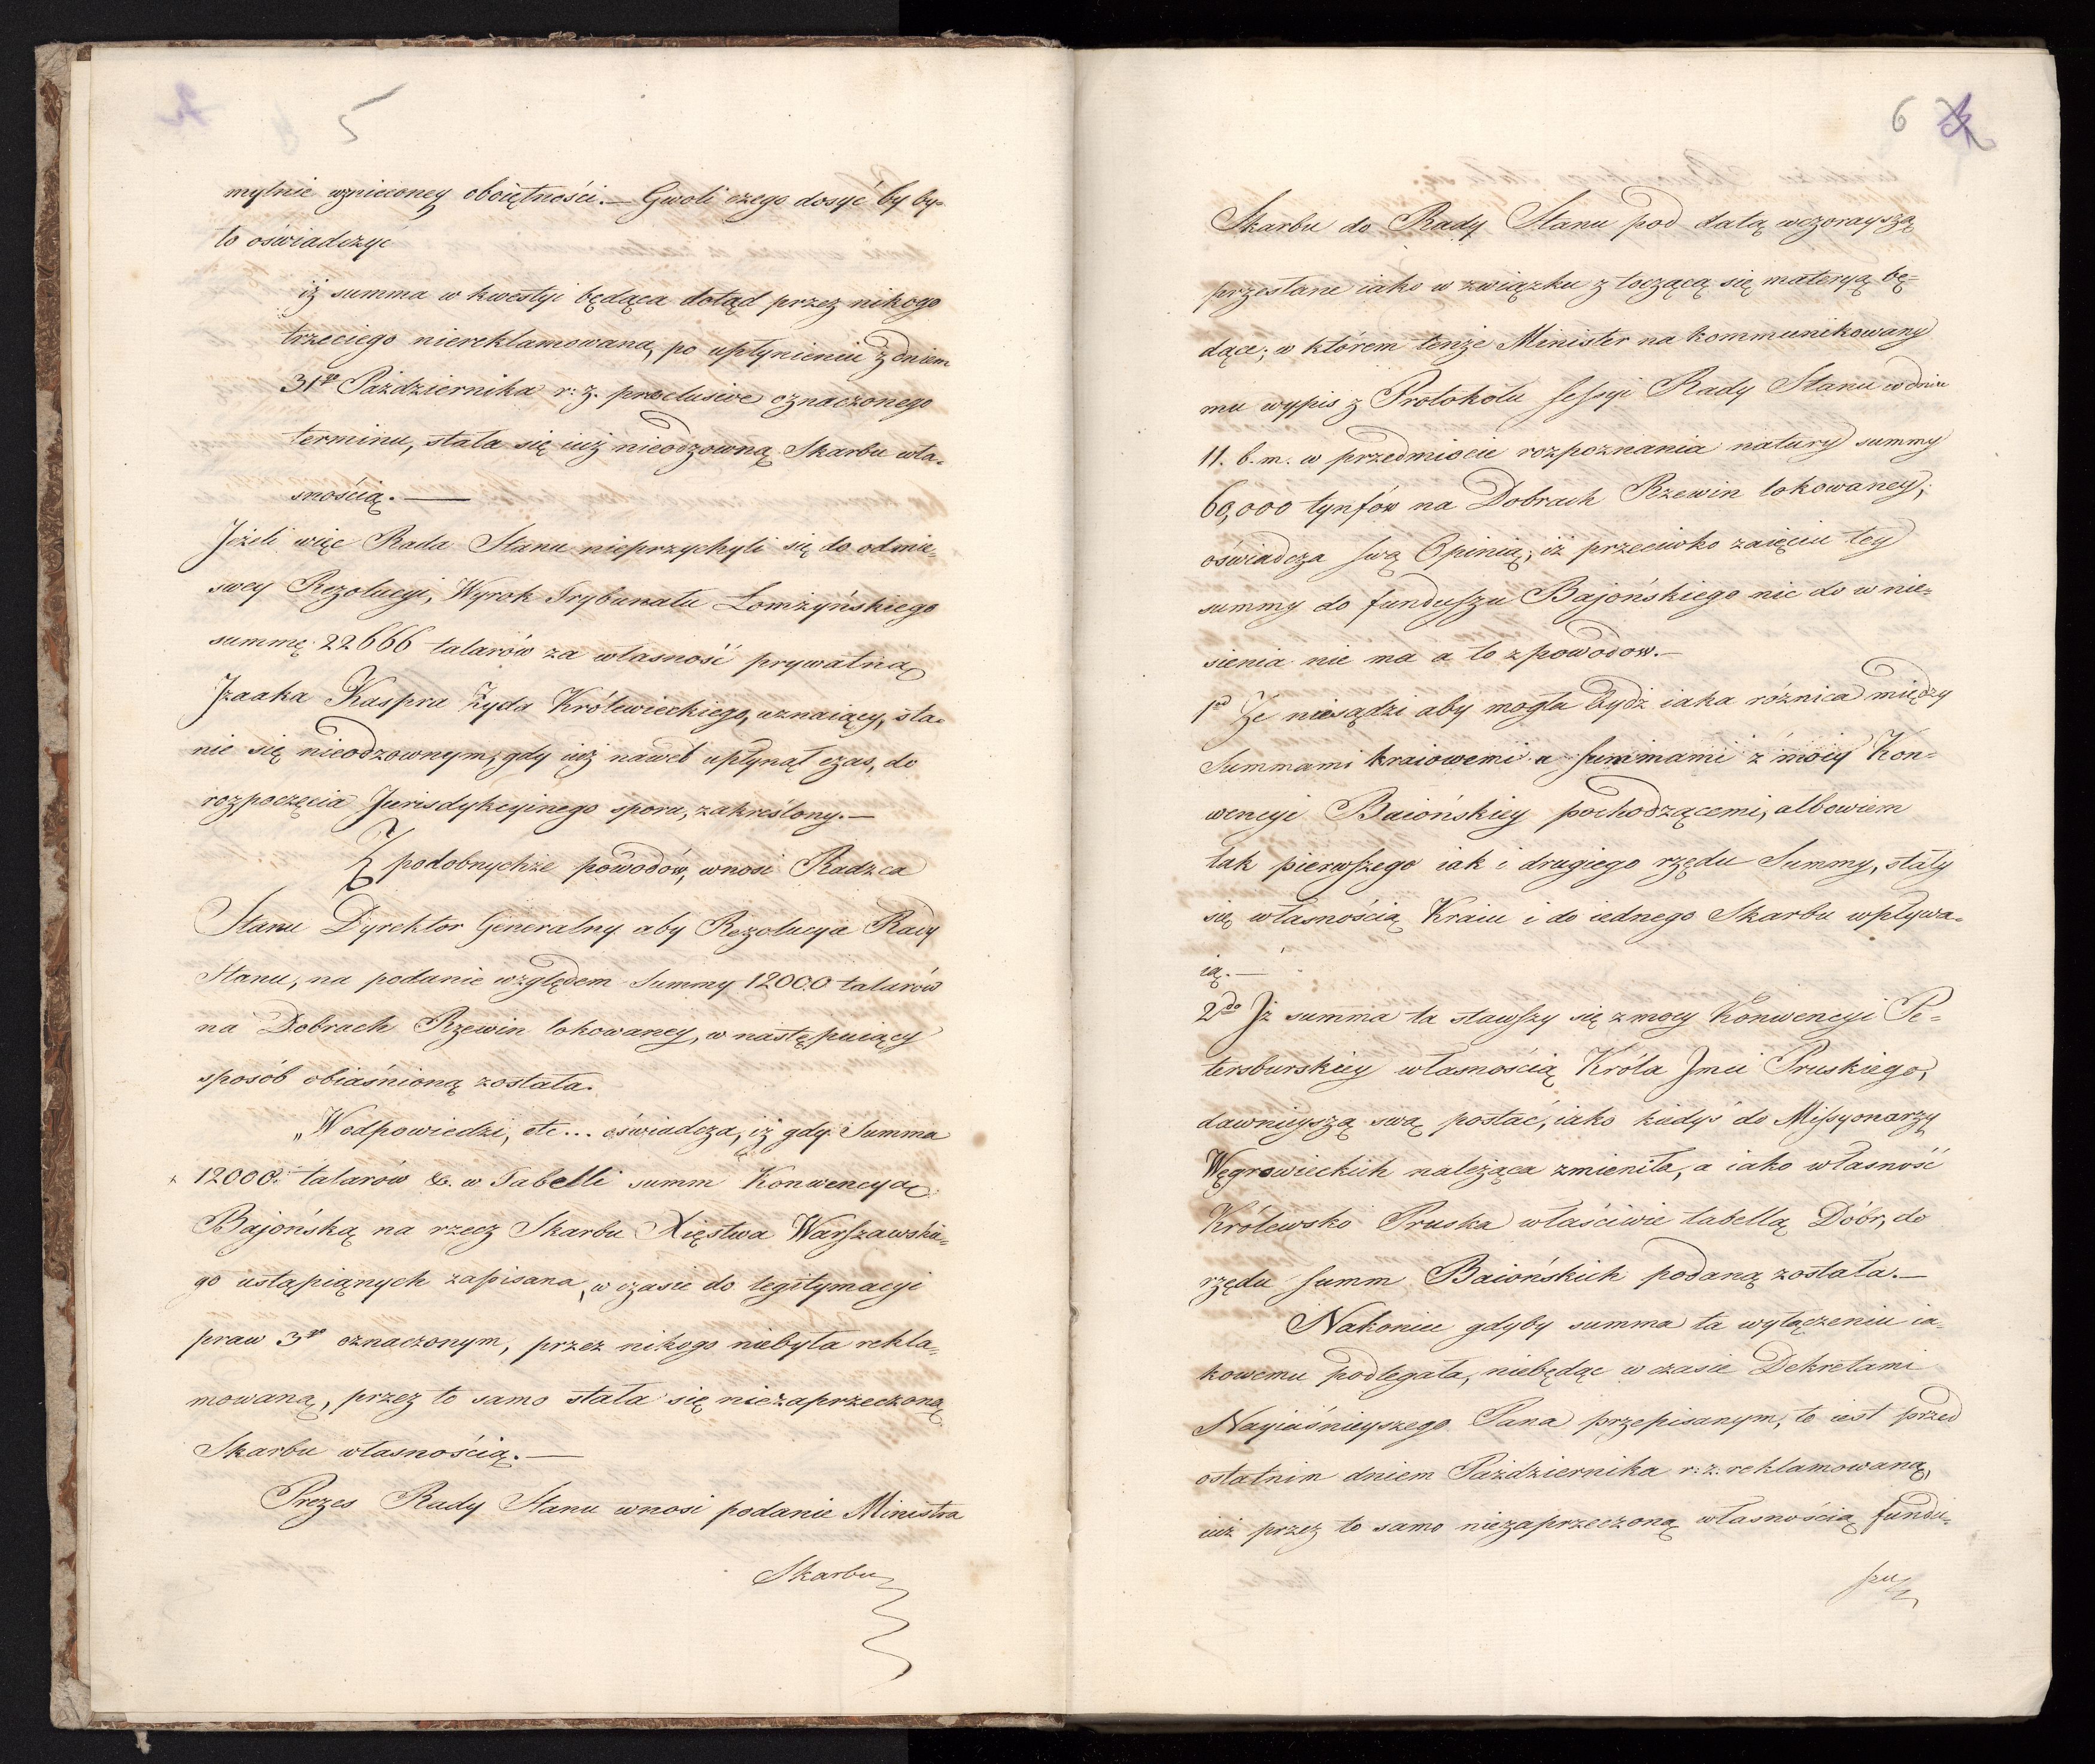 5
mylnie wznieconey oboiętności.— Gwoli czego dosyć by by-
ło oświadczyć
iż summa w kwestyi będąca dotąd przez nikogo
trzeciego niereklamowana, po upłynieniu z dniem
31go Października r: z. preclusive oznaczonego
terminu, stała się iuż nieodzowną Skarbu wła-
snością.—
Jeżeli więc Rada Stanu nieprzychyli się do odmia-
swey Rezolucyi, Wyrok Trybunału Łomżyńskiego
summę 22666 talarów za własność prywatną
Jzaaka Kaspra Żyda Królewieckiego, uznaiący, sta-
nie się nieodzownym, gdy iuż nawet upłynął czas, do
rozpoczęcia Jurisdykcyinego sporu, zakreślony.—
Z podobnychże powodów, wnosi Radzca
Stanu Dyrektor Generalny aby Rezolucya Rady
Stanu, na podanie względem Summy 12000 talarów
na Dobrach Rzewin lokowaney, w następuiący
sposób obiaśnioną została.
„W odpowiedzi, etc... oświadcza, iż gdy Summa
12000. talarów &. w Tabelli summ Konwencyą
Bajońską na rzecz Skarbu Xięstwa Warszawskie-
go ustąpiąnych zapisana, w czasie do legitymacyi
praw 3go oznaczonym, przez nikogo niebyła rekla-
mowaną, przez to samo stała się niezaprzeczoną
Skarbu własnością.—
Prezes Rady Stanu wnosi podanie Ministra
Skarbu
6
Skarbu do Rady Stanu pod datą wczorayszą
przesłane iako w związku z toczącą się materyą bę-
dące; w którem tenże Minister na kommunikowany
mu wypis z Protokołu sessyi Rady Stanu w dniu
11. b. m. w przedmiocie rozpoznania natury summy
60,000 tynfów na Dobrach Rzewin lokowaney,
oświadcza swą Opinią, iż przeciwko zaięciu tey
summy do funduszu Bajońskiego nic do wnie-
sienia nie ma a to z powodow.—
1o Że niesądzi aby mogła bydź iaka różnica między
Summami kraiowemi a summami z mocy Kon-
wencyi Baiońskiey pochodzącemi, albowiem
tak pierwszego iak i drugiego rzędu Summy, stały
się własnością Kraiu i do iednego Skarbu wpływa-
ią.—
2do Jż summa ta stawszy się z mocy Konwencyi Pe-
tersburskiey własnością Króla Jmci Pruskiego,
dawnieyszą swą postać, iako kiedyś do Missyonarzy
Węgrowieckich należąca zmieniła, a iako własność
Królewsko Pruska właściwie tabellą Dóbr, do
rzędu summ Baiońskich podaną została.—
Nakoniec gdyby summa ta wyłączeniu ia-
kowemu podlegała, niebędąc w czasie Dekretami
Nayiaśnieyszego Pana przepisanym, to iest przed
ostatnim dniem Października r: z: reklamowaną,
iuż przez to samo niezaprzeczoną własnością fundu-
szu